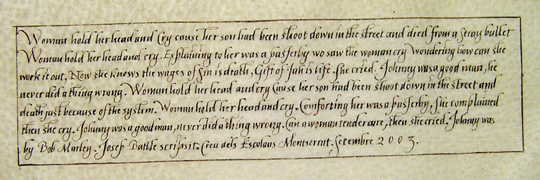 Woman hold her head and Cry cause her son had been shoot down in the street and died from a stray bullet
Woman hold her head and cry. Explaining to her was a passerby wo saw the woman cry wondering how can she
work it out, Now she knows the wages of Sin is death, Gift of Jah is life. She cried. Johnny was a good man, he
never did a thing wrong. Woman hold her head and cry cause her son had been shoot down in the street and
death just because of the system. Woman hold her head and cry. Comforting her was a passerby, she complained
then she cry. Johnny was a good man, never did a thing wrong. Can a woman tender care, then she cried. Johnny was
by Bob Marley. Josep Batlle scripsit. Creu dels Escolans Montserrat. Setembre 2003.